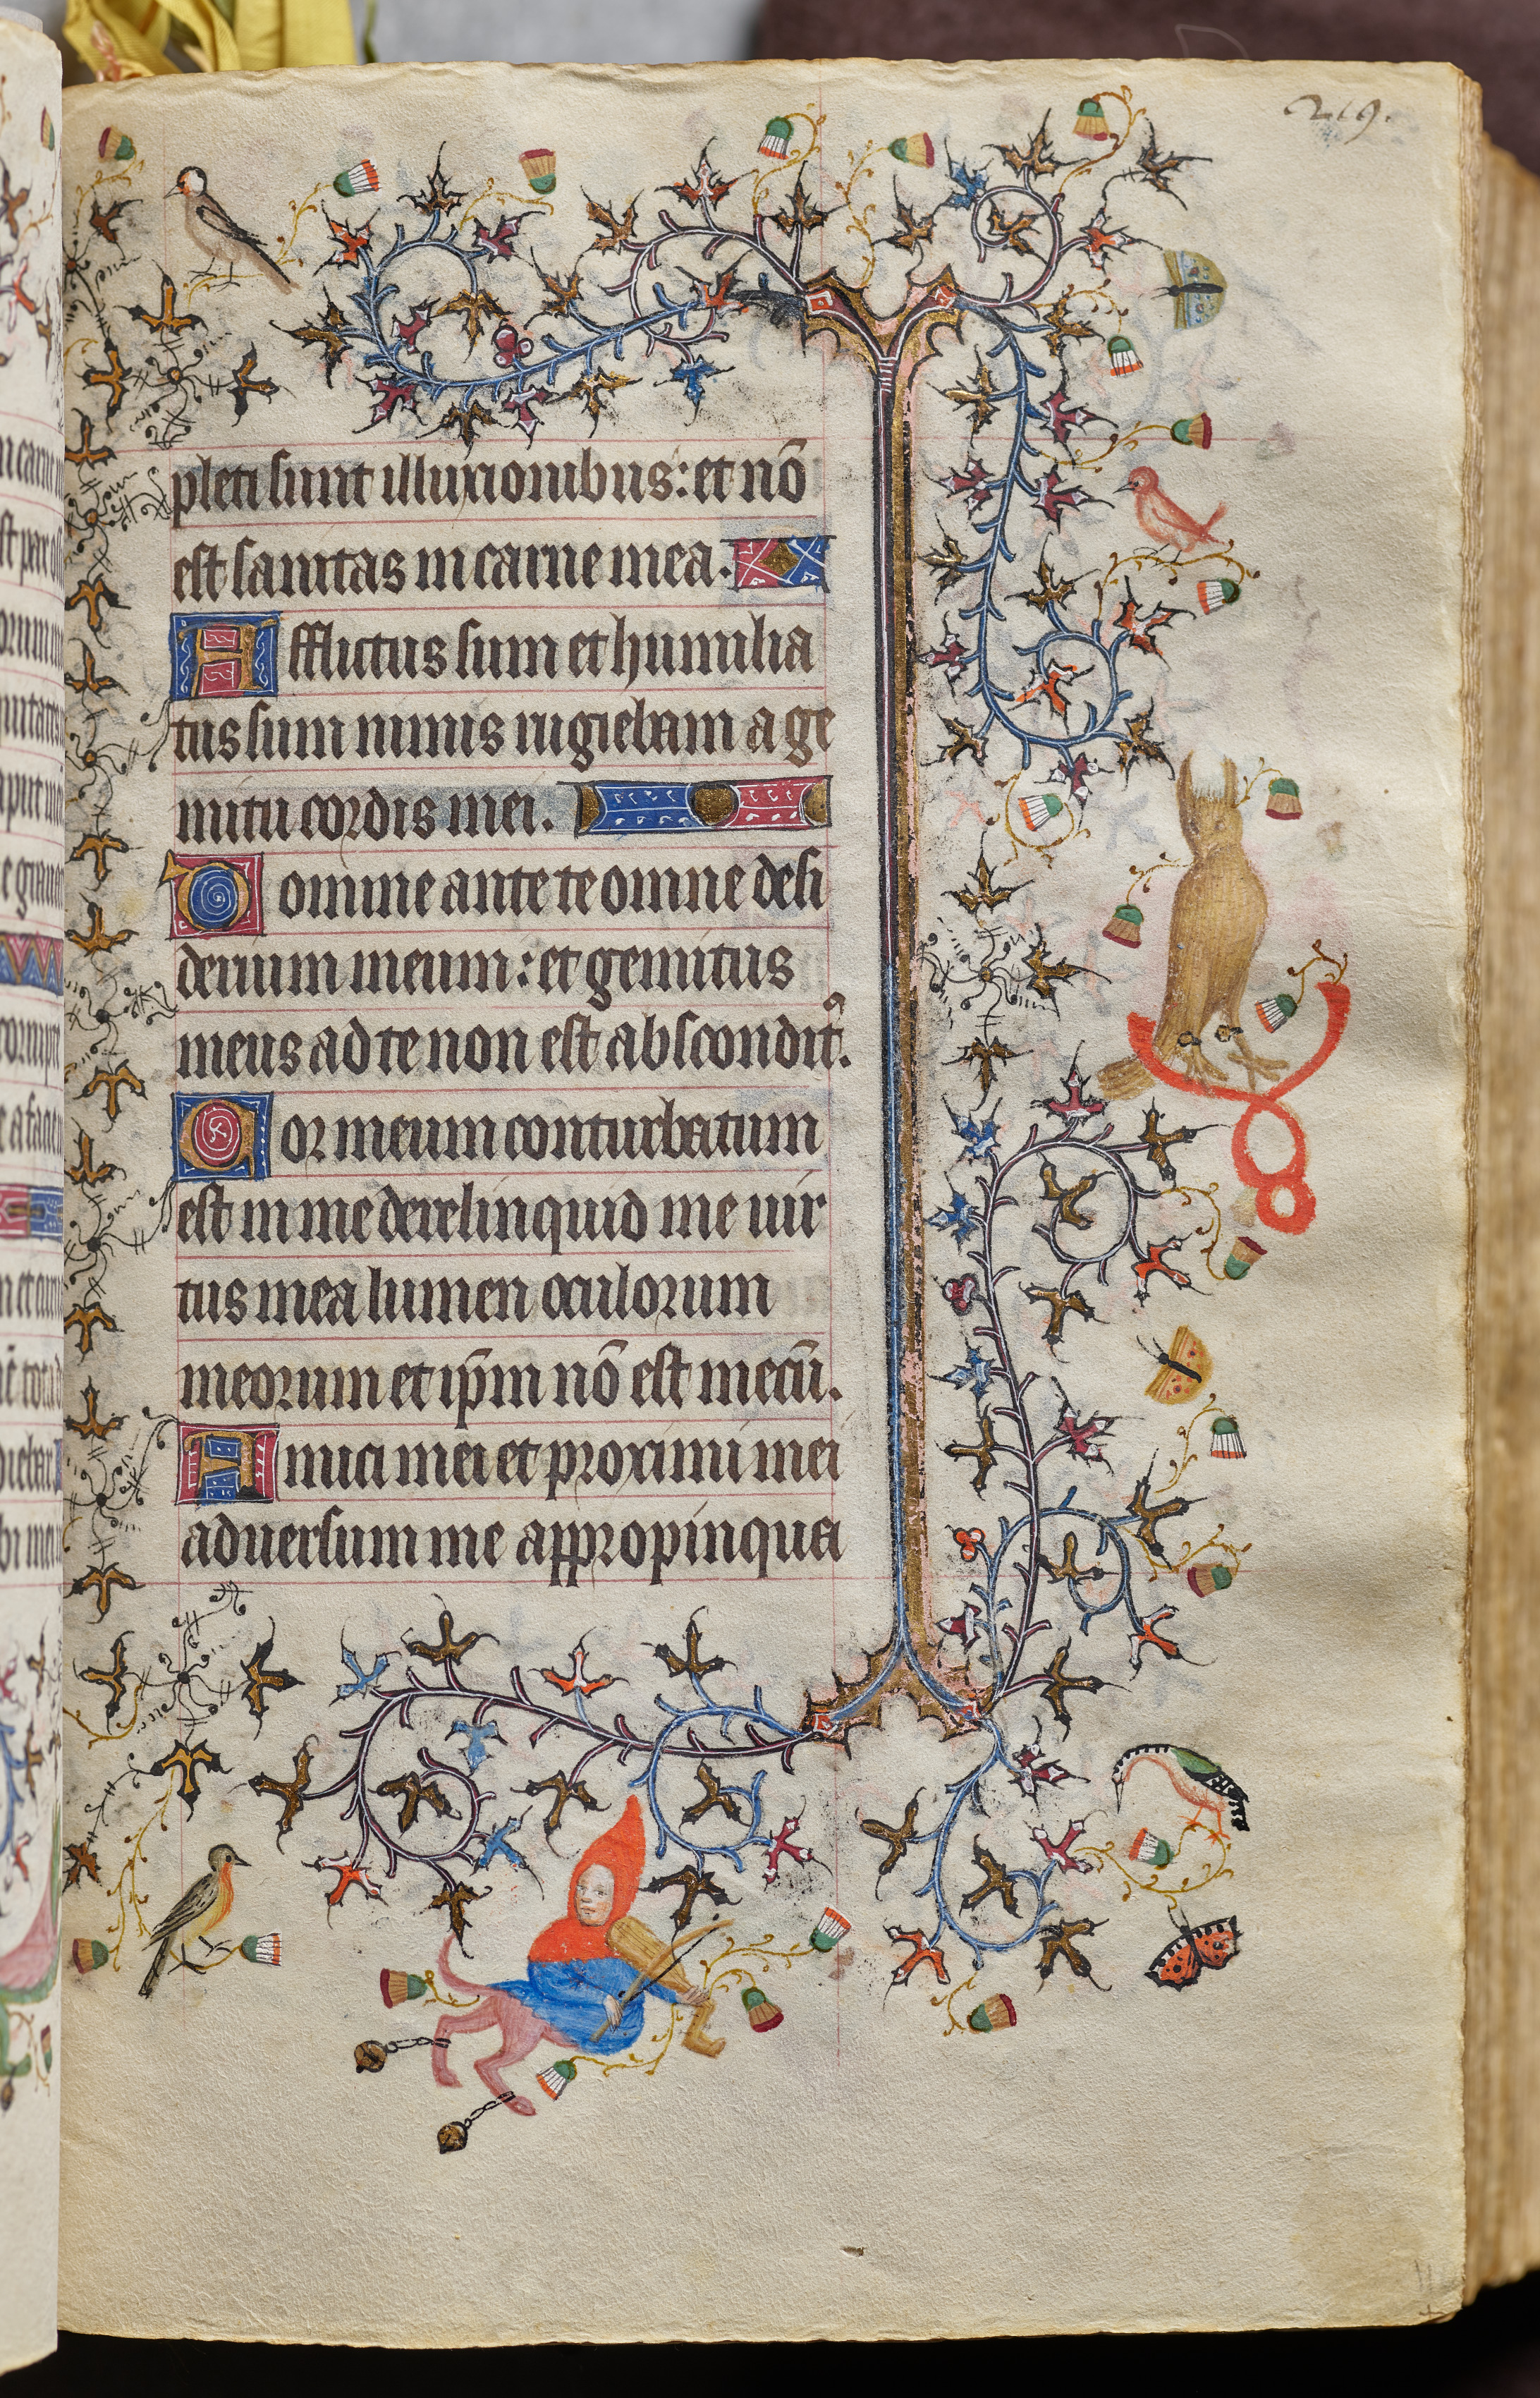 219.
pleti sunt illuxionibus: et nō
est sanitas in carne mea.
Afflictus sum et humilia
tus sum nimis rugiebam a ge
mitu cordis mei.
Domine ante te omne desi
derium meum: et gemitus
meus ad te non est abscondit᷒.
Cor meum conturbatum
est in me derelinquid me uir
tus mea lumen oculorum
meorum et ip̄m nō est mecū.
Amici mei et proximi mei
aduersum me appropinqua